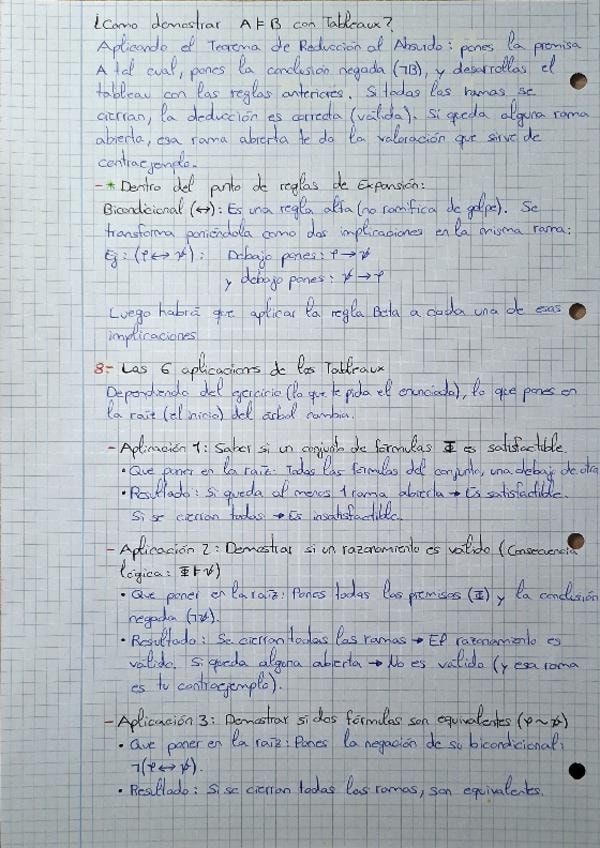 ¿Como demostrar A ⊨ B con Tableaux?
Aplicando el Teorema de Reducción al Absurdo: pones la premisa
A tal cual, pones la conclusión negada (¬B), y desarrollas el
tableau con las reglas anteriores. Si todas las ramas se
cierran, la deducción es correcta (válida). Si queda alguna rama
abierta, esa rama abierta te da la valoración que sirve de
contraejemplo.
- * Dentro del punto de reglas de Expansión:
Bicondicional (↔): Es una regla alfa (no ramifica de golpe). Se
transforma poniéndola como dos implicaciones en la misma rama:
Ej: (φ ↔ ψ): Debajo pones: φ → ψ
y debajo pones: ψ → φ
Luego habrá que aplicar la regla Beta a cada una de esas
implicaciones
8.- Las 6 aplicaciones de los Tableaux
Dependiendo del ejercicio (lo que te pida el enunciado), lo que pones en
la raíz (el inicio) del árbol cambia.
- Aplicación 1: Saber si un conjunto de fórmulas Φ es satisfactible.
• Que poner en la raíz: Todas las fórmulas del conjunto, una debajo de otra
• Resultado: Si queda al menos 1 rama abierta → Es satisfactible.
Si se cierran todas → Es insatisfactible.
- Aplicación 2: Demostrar si un razonamiento es válido (Consecuencia
lógica: Φ ⊨ ψ)
• Que poner en la raíz: Pones todas las premisas (Φ) y la conclusión
negada (¬ψ).
• Resultado: Se cierran todas las ramas → El razonamiento es
válido. Si queda alguna abierta → No es válido (y esa rama
es tu contraejemplo).
- Aplicación 3: Demostrar si dos fórmulas son equivalentes (φ ~ ψ)
• Que poner en la raíz: Pones la negación de su bicondicional:
¬(φ ↔ ψ).
• Resultado: Si se cierran todas las ramas, son equivalentes.